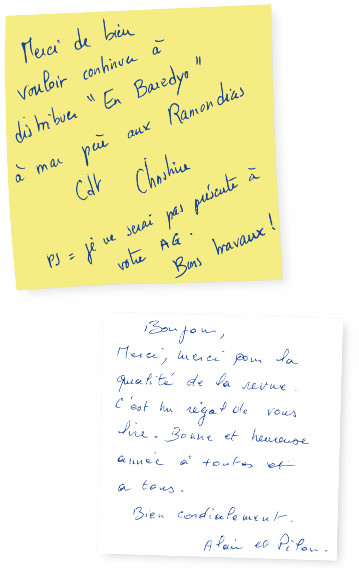 Merci de bien
vouloir continuer à
distribuer "En Baredyo"
à mon père aux Ramondias
Cdt Christine
PS = je ne serai pas présente à
votre AG.
Bons travaux !
Bonjour,
Merci, merci pour la
qualité de la revue.
C'est un régal de vous
lire. Bonne et heureuse
année à toutes et
a tous.
Bien cordialement.
Alain et